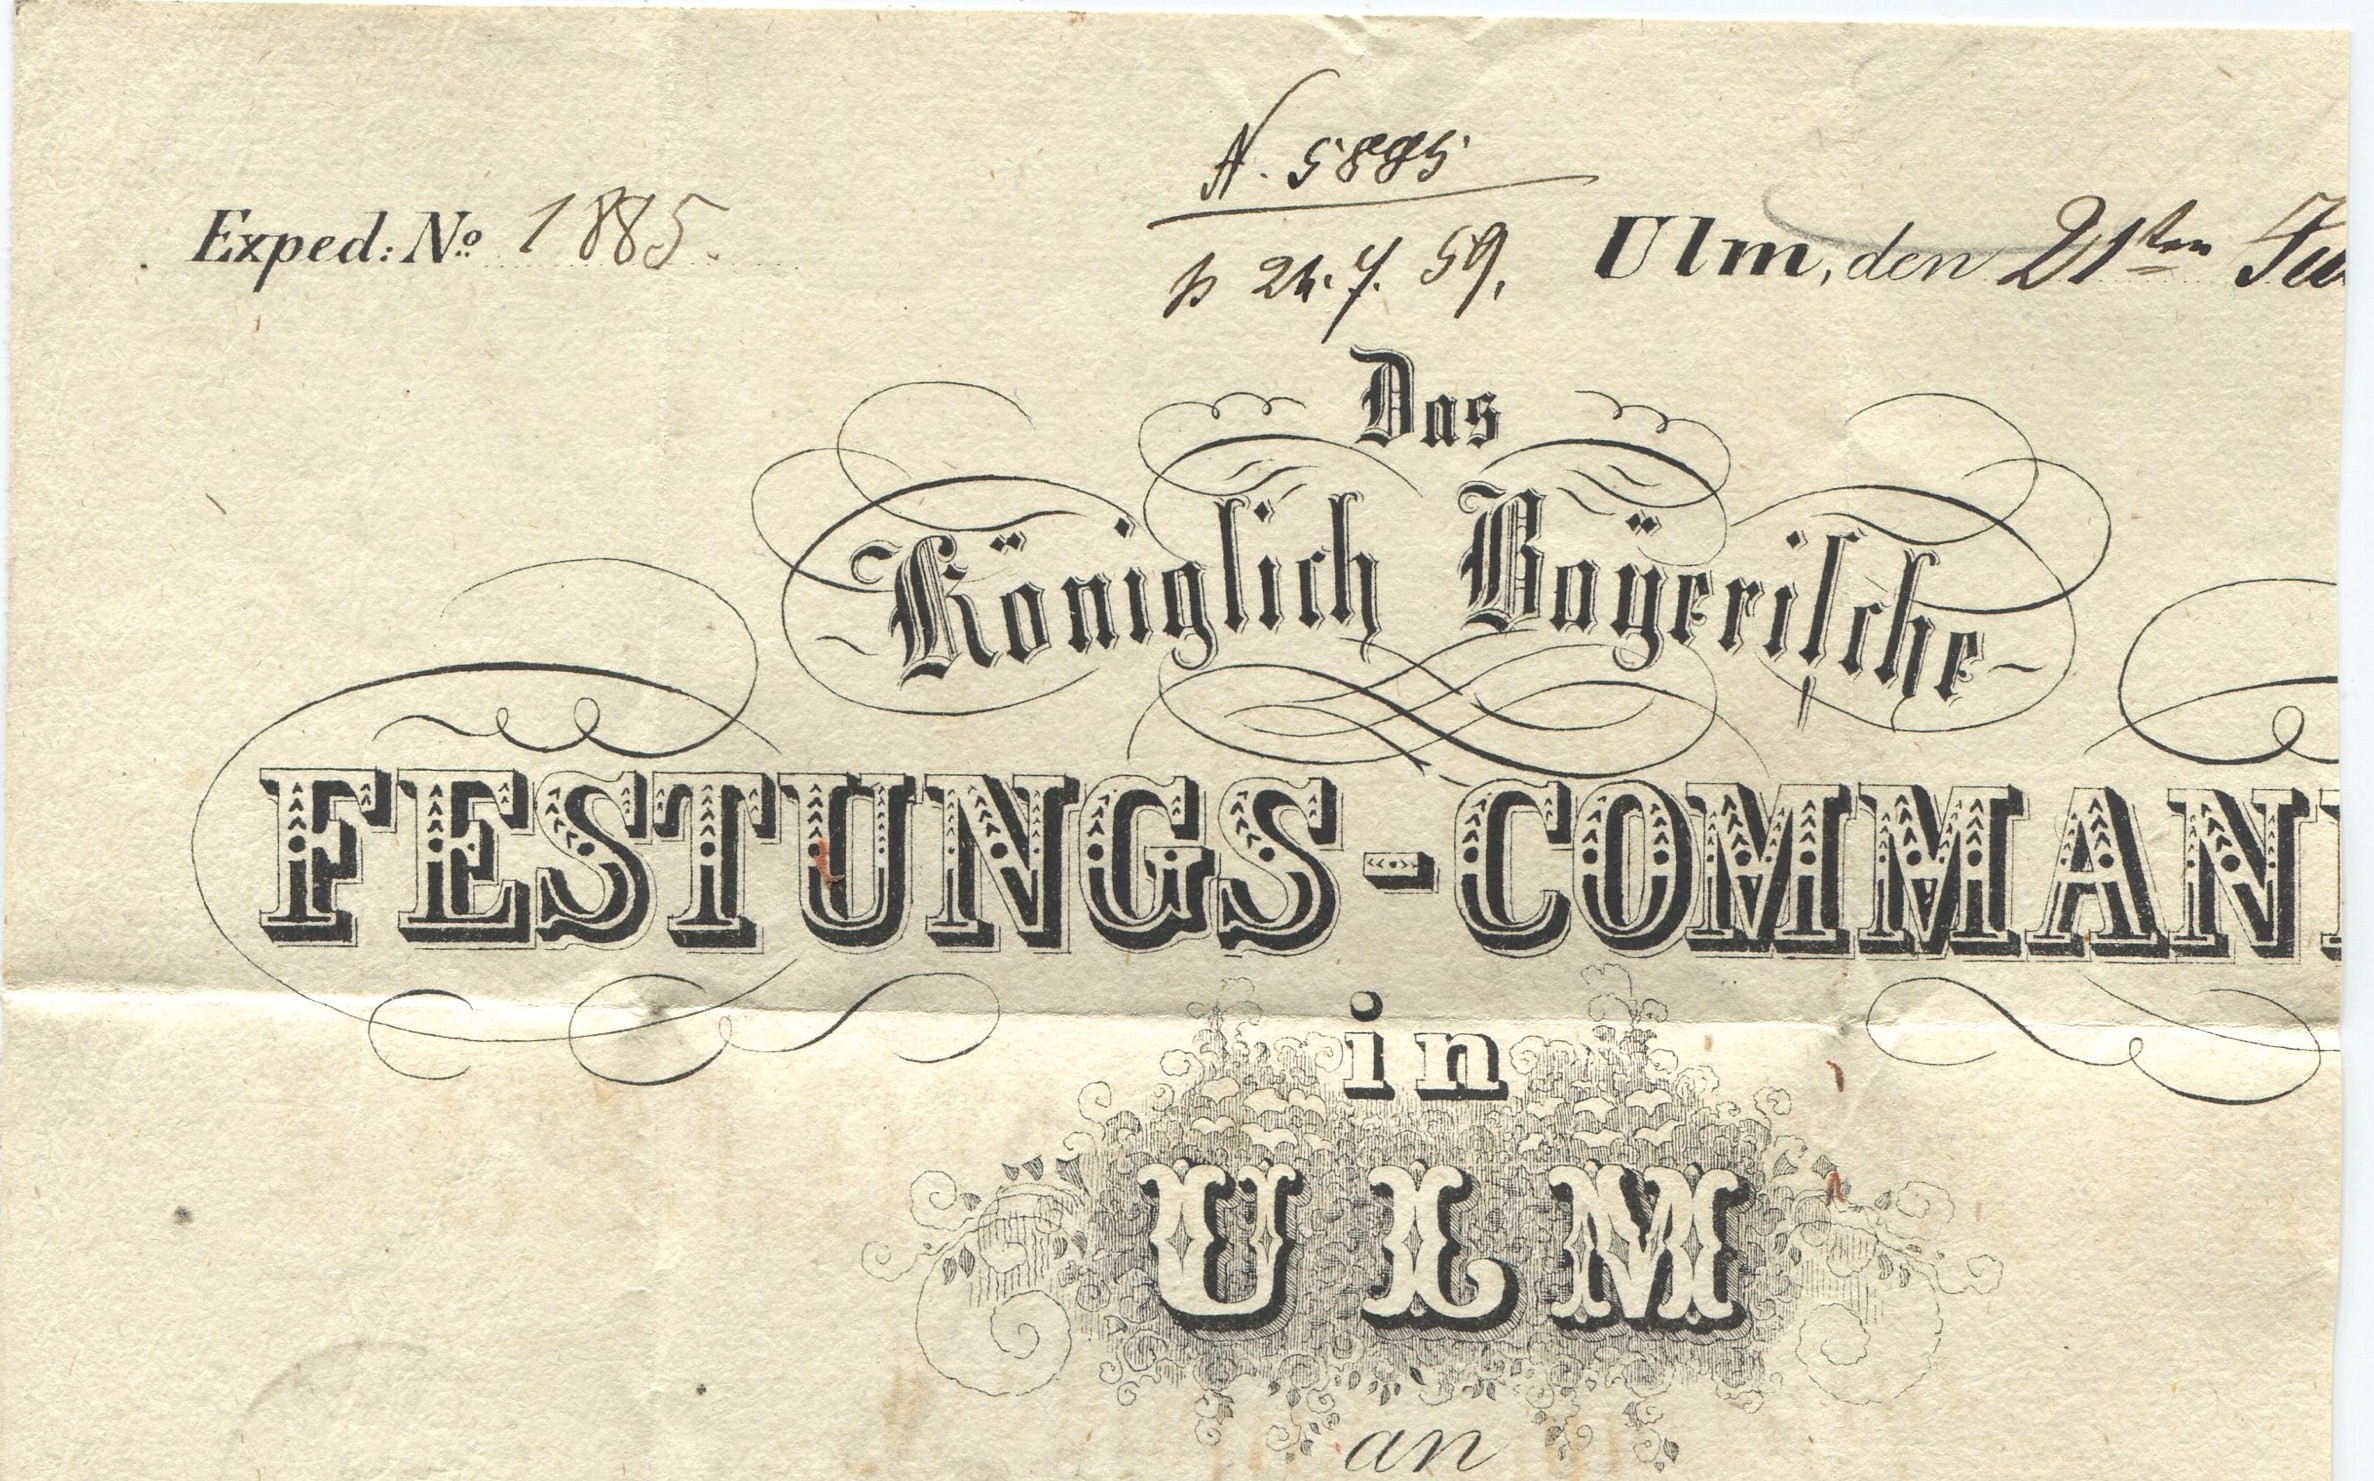 N. 5885
Exped: No. 1885.
p 24. 7. 59.
Ulm, den 21ten Ju
Das
Königlich Bayerische
FESTUNGS-COMMAN
in
ULM
an